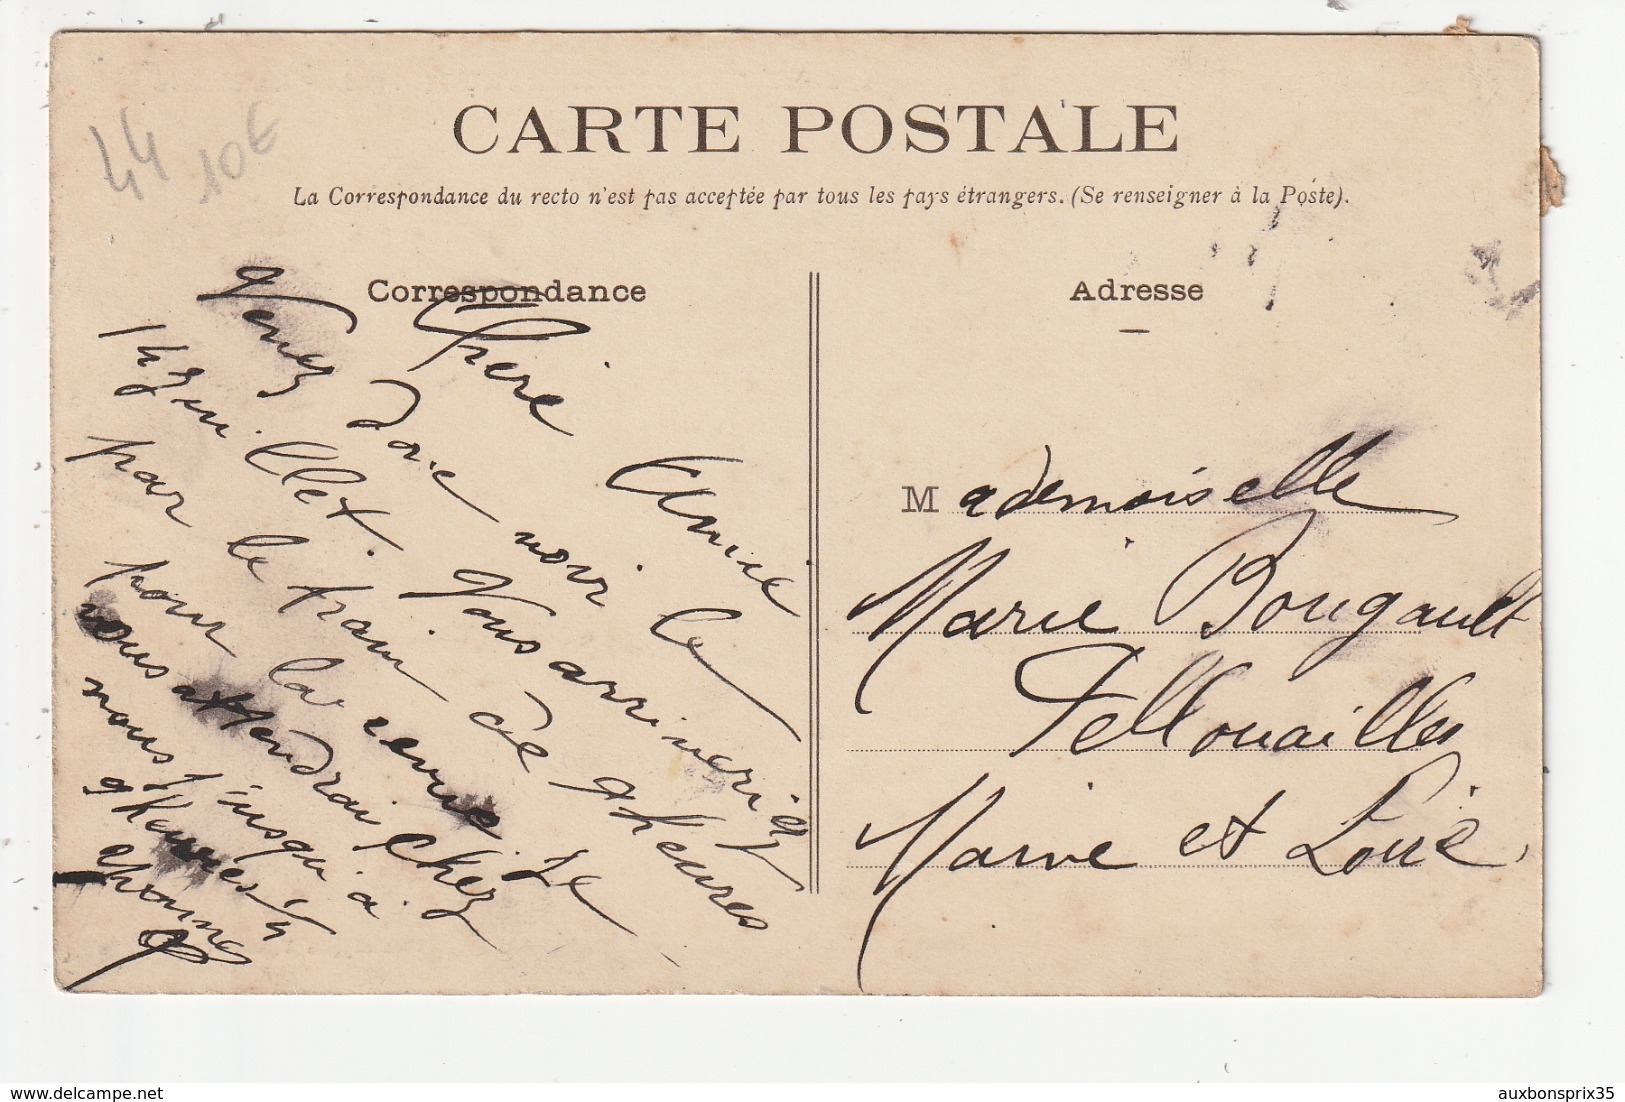 44 10€
CARTE POSTALE
La Correspondance du recto n'est pas acceptée par tous les pays étrangers. (Se renseigner à la Poste).
Correspondance
Chère Amie
Venez donc voir le
14 juillet Vous arriverez
par le train de 9 heures
pour la revue Je
vous attendrai chez
nous jusqu'à
9 heures ¼
Adresse
Mademoiselle
Marie Bougault
Fellouailles
Maine et Loire
www.delcampe.net
auxbonsprix35